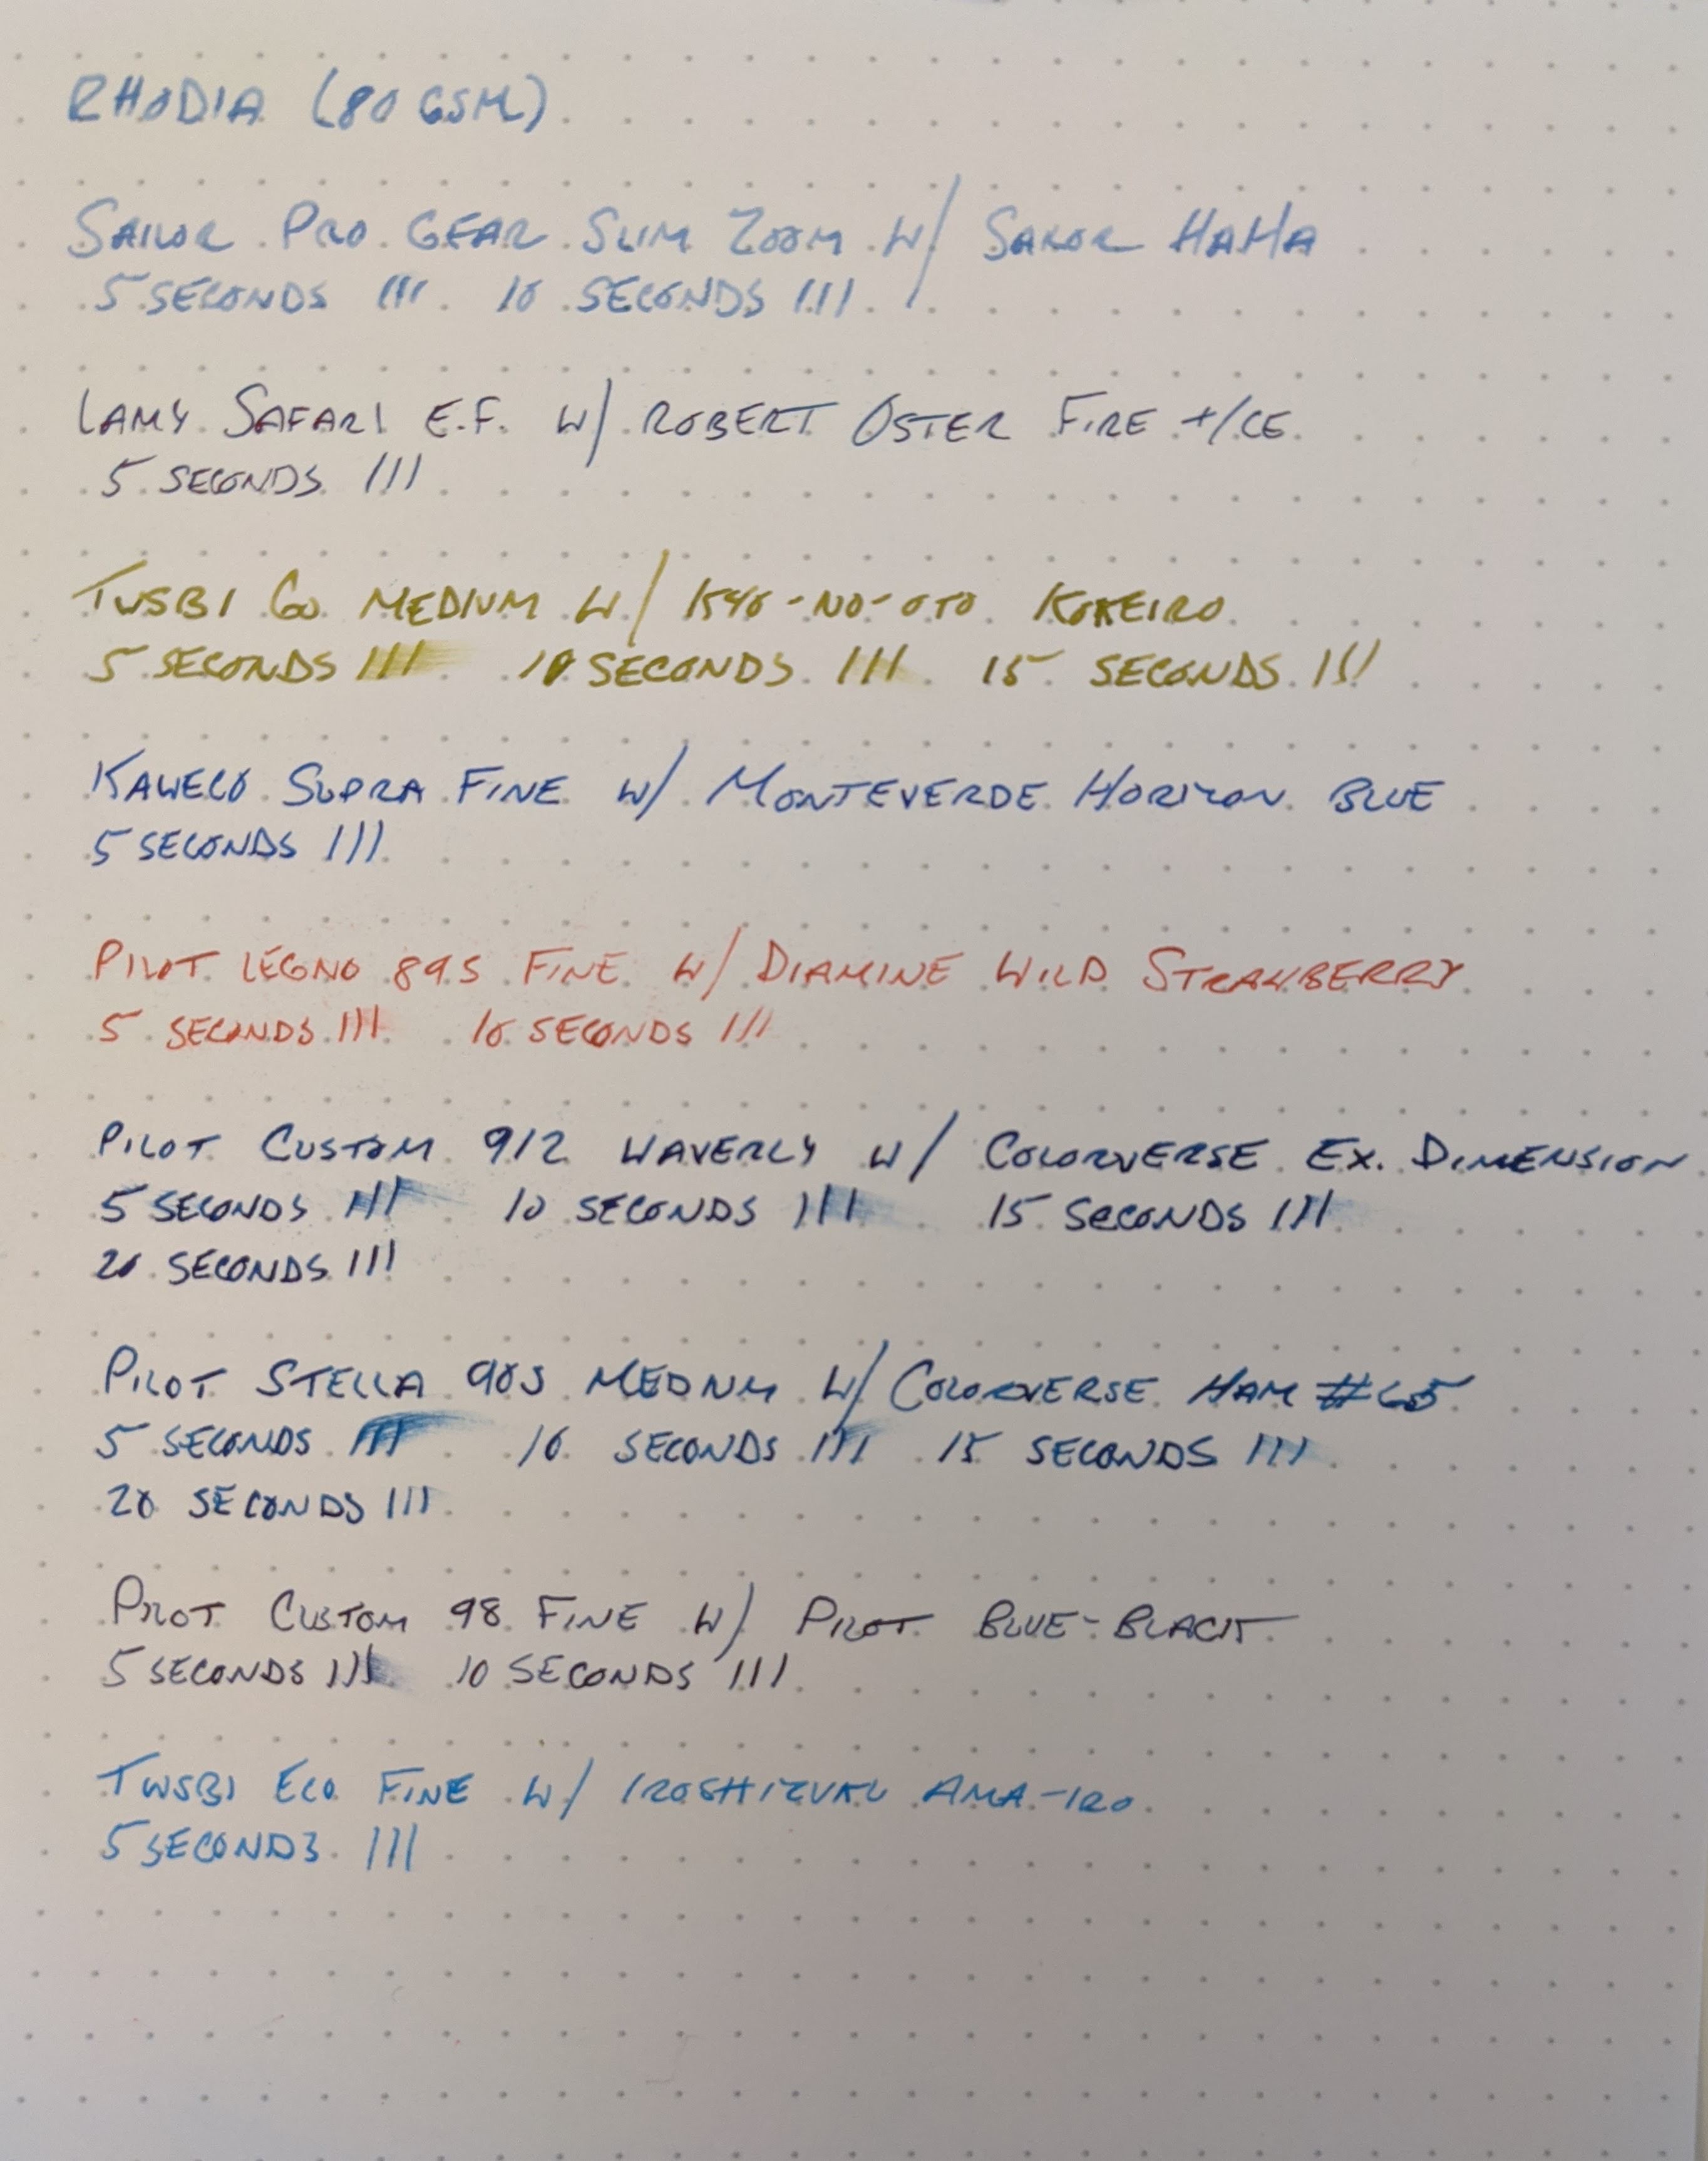 RHODIA (80 GSM)
SAILOR PRO GEAR SLIM ZOOM W/ SAILOR HAHA
5 SECONDS III 10 SECONDS III
LAMY SAFARI E.F. W/ ROBERT OSTER FIRE +/CE
5 SECONDS III
TWSBI GO MEDIUM W/ KYO-NO-OTO KOKEIRO
5 SECONDS III 10 SECONDS III 15 SECONDS III
KAWECO SUPRA FINE W/ MONTEVERDE HORIZON BLUE
5 SECONDS III
PILOT LEGNO 89S FINE W/ DIAMINE WILD STRAWBERRY
5 SECONDS III 10 SECONDS III
PILOT CUSTOM 912 WAVERLY W/ COLORVERSE EX. DIMENSION
5 SECONDS III 10 SECONDS III 15 SECONDS III
20 SECONDS III
PILOT STELLA 90S MEDIUM W/ COLORVERSE HAM #65
5 SECONDS III 10 SECONDS III 15 SECONDS III
20 SECONDS III
PILOT CUSTOM 98 FINE W/ PILOT BLUE-BLACK
5 SECONDS III 10 SECONDS III
TWSBI ECO FINE W/ IROSHIZUKU AMA-IRO
5 SECONDS III